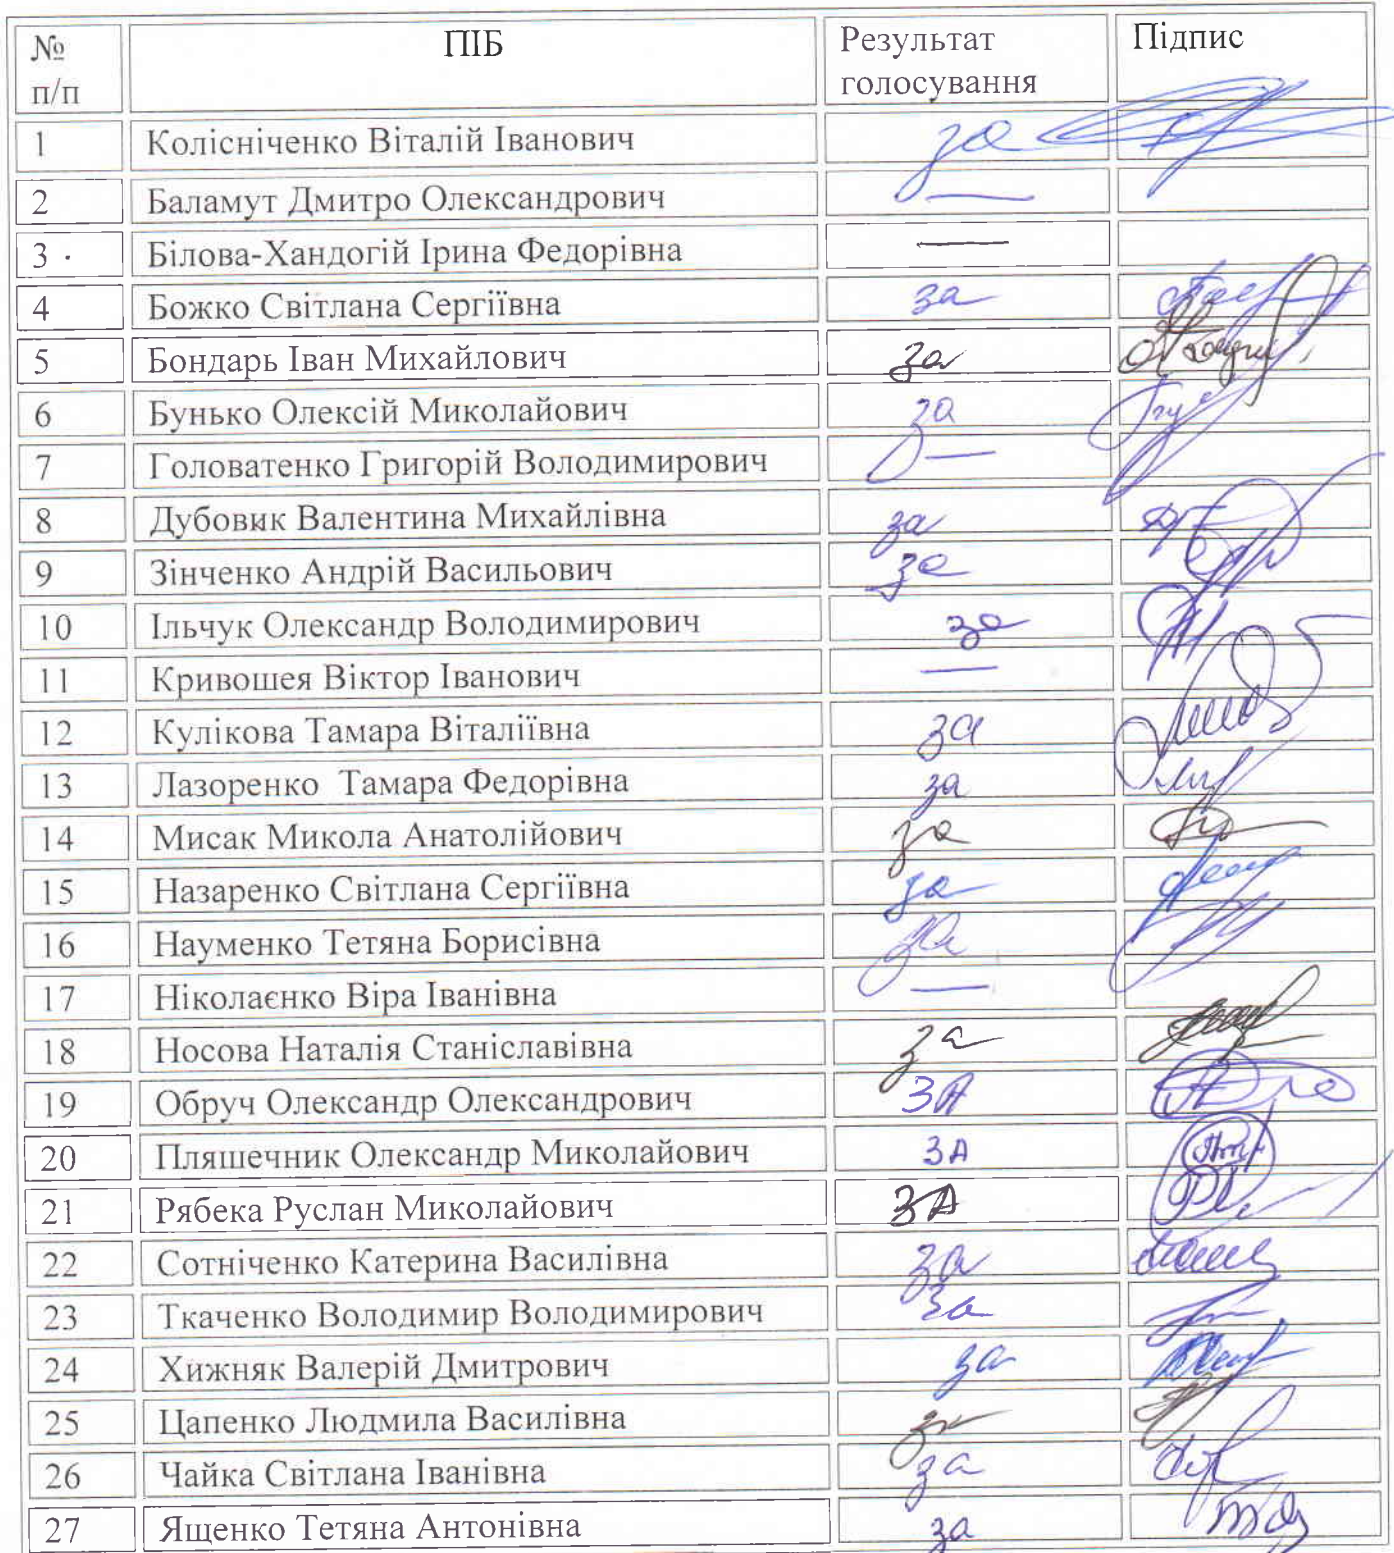 № п/п ПІБ Результат голосування Підпис
1 Колісніченко Віталій Іванович за
2 Баламут Дмитро Олександрович —
3 Білова-Хандогій Ірина Федорівна —
4 Божко Світлана Сергіївна за
5 Бондарь Іван Михайлович за
6 Бунько Олексій Миколайович за
7 Головатенко Григорій Володимирович —
8 Дубовик Валентина Михайлівна за
9 Зінченко Андрій Васильович за
10 Ільчук Олександр Володимирович за
11 Кривошея Віктор Іванович —
12 Кулікова Тамара Віталіївна за
13 Лазоренко Тамара Федорівна за
14 Мисак Микола Анатолійович за
15 Назаренко Світлана Сергіївна за
16 Науменко Тетяна Борисівна за
17 Ніколаєнко Віра Іванівна —
18 Носова Наталія Станіславівна за
19 Обруч Олександр Олександрович ЗА
20 Пляшечник Олександр Миколайович ЗА
21 Рябека Руслан Миколайович ЗА
22 Сотніченко Катерина Василівна за
23 Ткаченко Володимир Володимирович За
24 Хижняк Валерій Дмитрович за
25 Цапенко Людмила Василівна за
26 Чайка Світлана Іванівна за
27 Ященко Тетяна Антонівна за